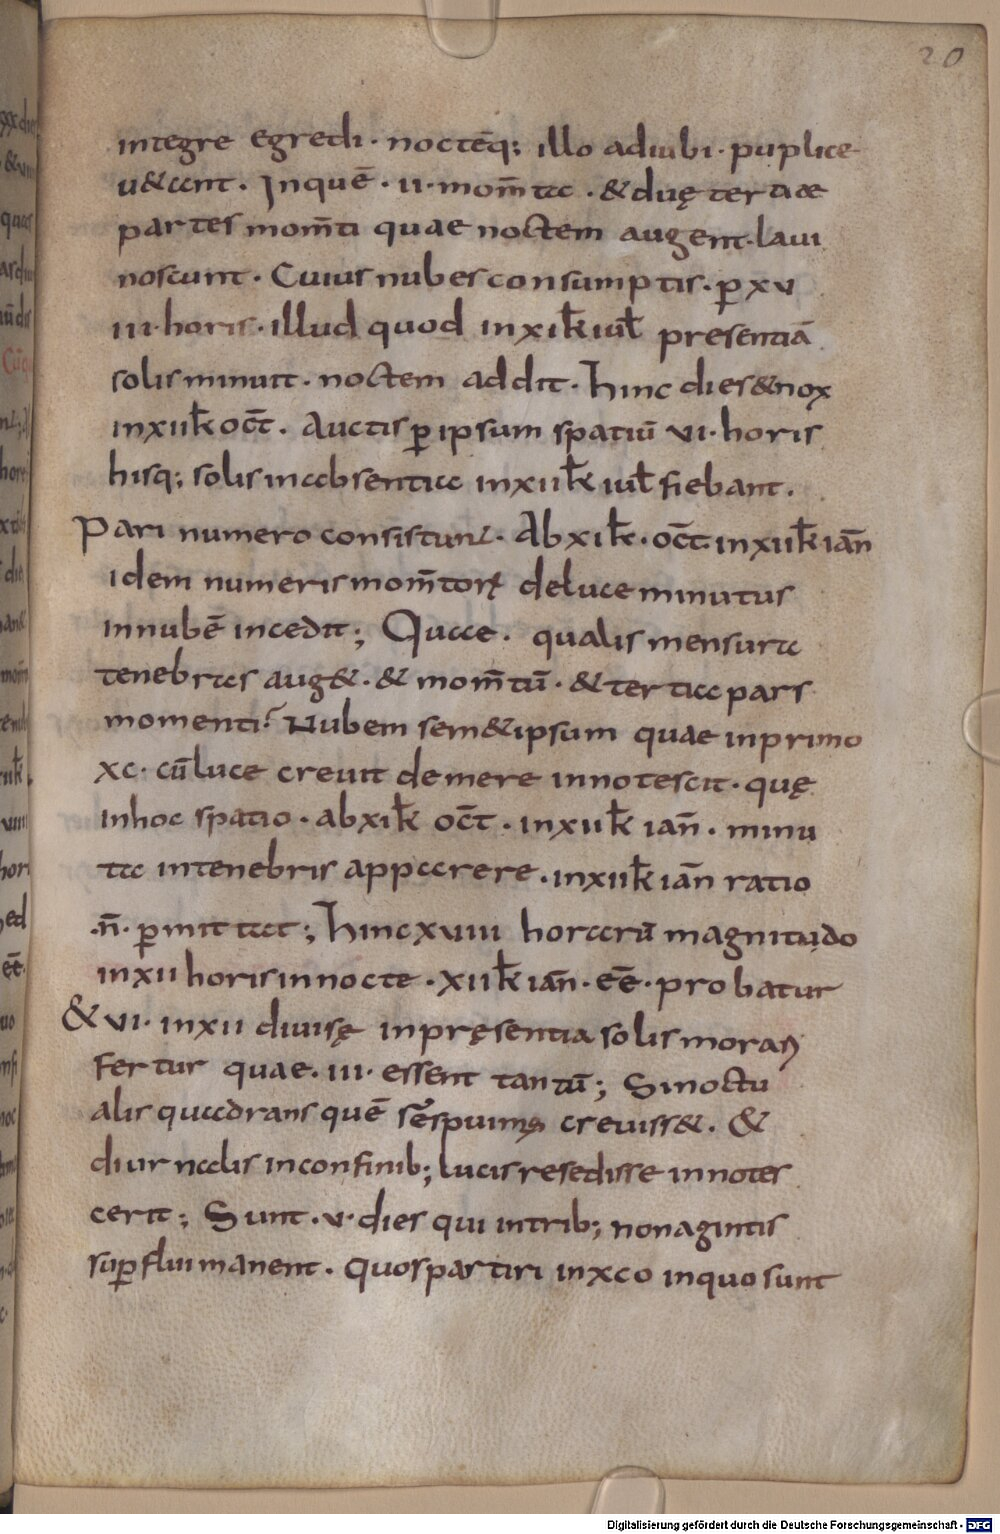 20
integre egredi · noctēq; illo adiubi · puplice
u&ant · Inquē · ii · mom̄ta · & duę tertiae
partes mom̄ti quae noctem augent · laui
noscunt · Cuius nubes consumptis · p̲ xv
iii · horis · illud quod in xi kł iuł presentiā
solis minuit · noctem addit · hinc dies & nox
in xii kł oct̄ . Auctis p̲ ipsum spatiū vi · horis
hisq; solis in absentia in xii kł iuł fiebant .
Pari numero consistunt · Ab xi kł · oct̄ · in xii kł iañ
idem numeris mom̄torꝝ de luce minutus
in nubē incedit ; Quae . qualis mensura
tenebras aug& · & mom̄tū · & tertia pars
momenti? Nubem sem& ipsum quae in primo
xc · cū luce creuit demere innotescit · quę
in hoc spatio · ab xi kł oct̄ · in xii kł iañ · minu
ta in tenebris apparere . in xii kł iañ ratio
· n̄ · p̲mittat ; hinc xviii horarū magnitudo
in xii horis in nocte · xii kł iañ · eē · probatur
& vi · in xii diuisę in pręsentia solis moras
fertur quae · iii · essent tantū ; Si noctu
alis quadrans quē crenisse& . &
diurnalis in confinib; lucis resedisse innotes
cerit ; Sunt · v · dies qui in trib; nonagintis
sup̲flui manent . quos partiri in xco in quo sunt
Digitalisierung gefördert durch die Deutsche Forschungsgemeinschaft - DFG